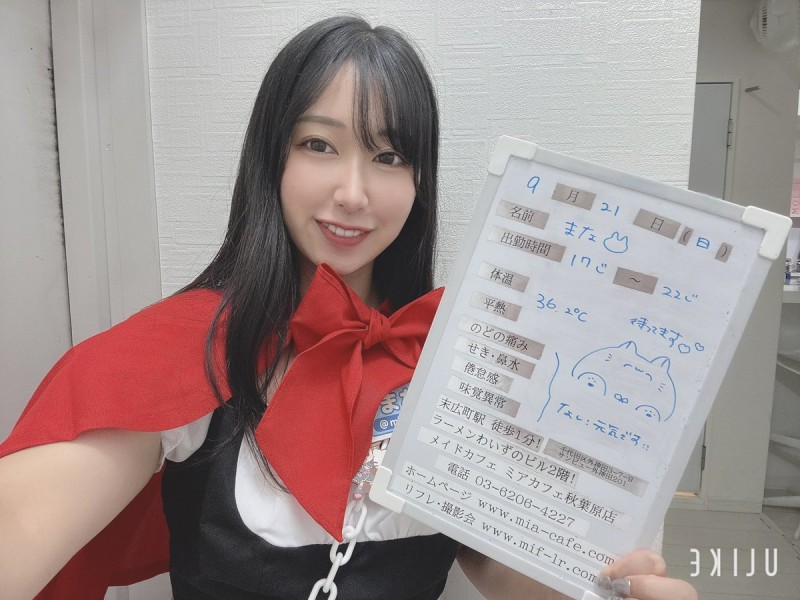 9月21日(日)
名前 まな
出勤時間 17じ ～ 22じ
体温
平熱 36.2℃
待ってます♡♡
のどの痛み
せき・鼻水
倦怠感
味覚異常
なし：元気です
末広町駅 徒歩1分！
千代田区外神田3-7-8
サンビュー外神田201
ラーメンわいずのビル2階！
メイドカフェ ミアカフェ秋葉原店
電話 03-6206-4227
ホームページ www.mia-cafe.com
リフレ・撮影会 www.mif-lr.com
ULIKE